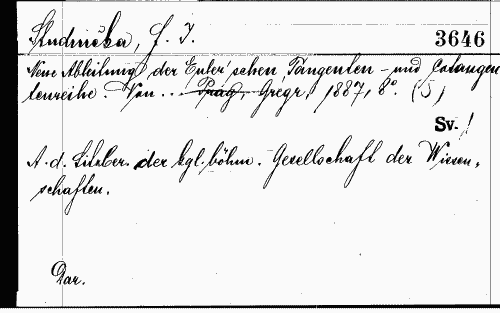 Studnička, F. J.
3646
Neue Ableitung der Euler'schen Tangenten- und Cotangen
tenreihe. Von ... Prag, Grégr, 1887, 8°. (5)
Sv. /
A. d. Sitzber. der kgl. böhm. Gesellschaft der Wissen-
schaften.
Dar.